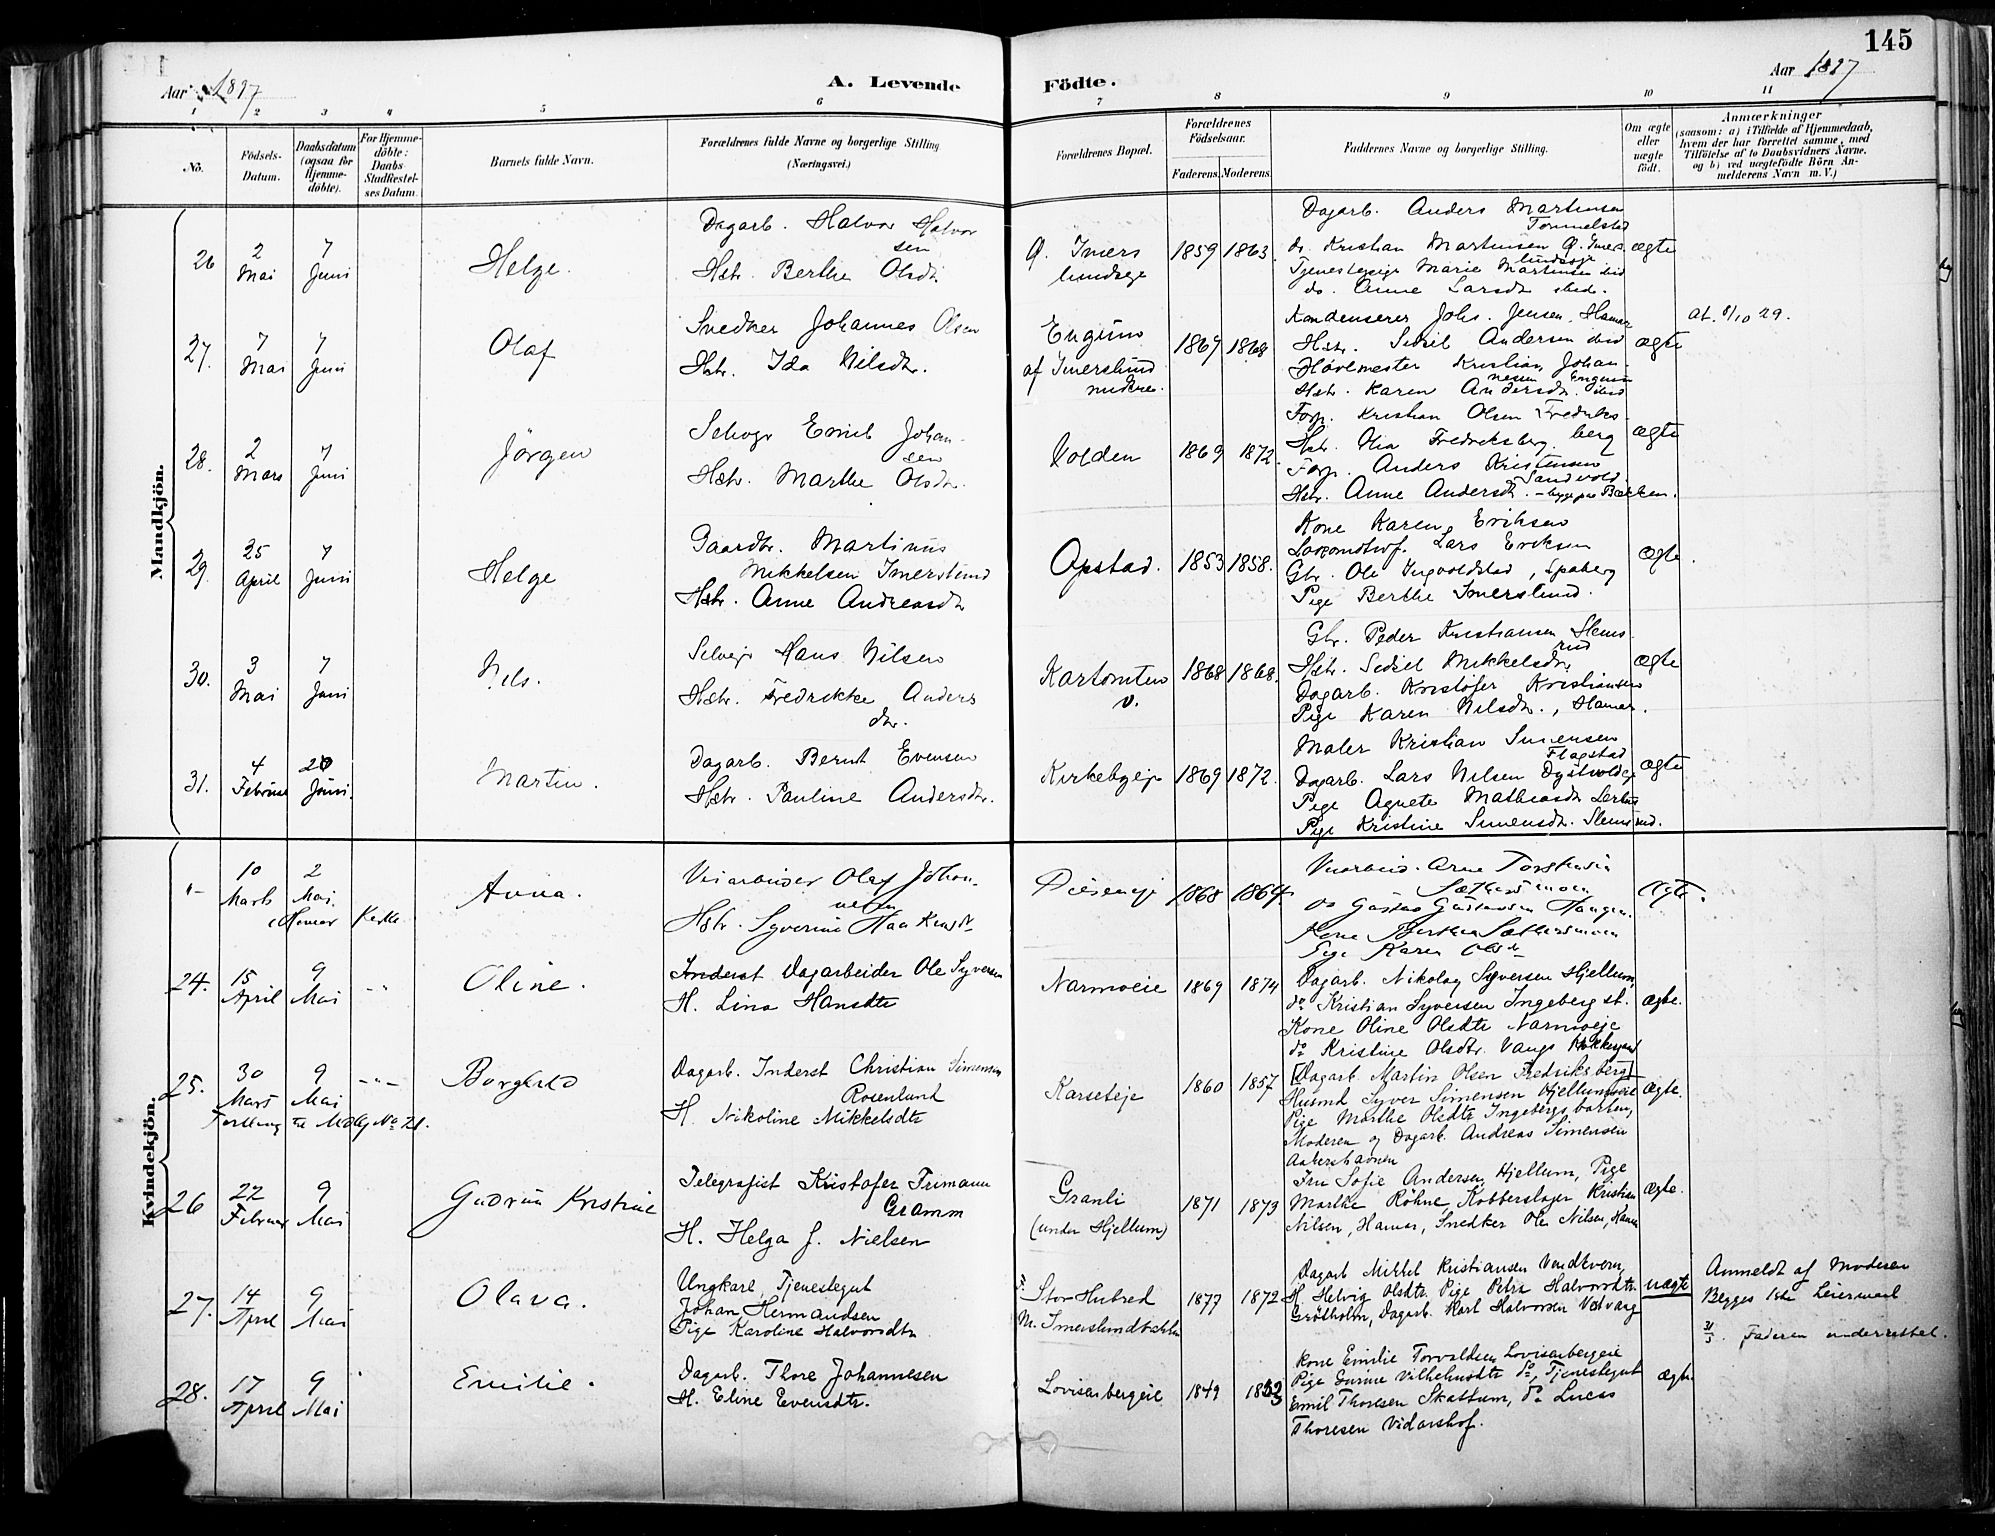 145
Aar 1897
A. Levende Födte.
Aar 1897
1 2 3 4 5 6 7 8 9 10 11
No.
Födsels-
Datum.
Daabsdatum
(ogsaa for
Hjemme-
döbte).
For Hjemme-
döbte:
Daabs
Stadfæstel-
ses Datum.
Barnets fulde Navn.
Forældrenes fulde Navne og borgerlige Stilling
(Næringsvei.)
Forældrenes Bopæl.
Forældrenes
Födselsaar.
Faderens. Moderens.
Faddernes Navne og borgerlige Stilling.
Om ægte
eller
uægte
födt.
Anmærkninger
(saasom: a) i Tilfælde af Hjemmedaab,
hvem der har forrettet samme, med
Tilföielse af to Daabsvidners Navne,
og b) ved uægtefödte Börn An-
melderens Navn m. V.)
Mandkjön.
26
2
Mai
7
Juni
Helge.
Dagarb. Halvor Halvor
sen
Hstr. Berthe Olsdtr.
Ø. Imers
lundseje
1859 1863.
Dagarb. Anders Martinsen
Tommelstad
do. Kristian Martinsen Ø. Imers
lundseje
Tjenestepige Marie Martinsen ibid
do. Anne Larsdtr. ibid.
ægte
27.
7
Mai
7
Juni
Olaf
Snedker Johannes Olsen
Hstr. Ida Nilsdtr.
Engum
af Imerslund
nedre.
1867 1868
Kondenserer Johs. Jensen, Hamar
Hstr. Sidsil Andersen ibid
Høvlmester Kristian Johan
nesen Engum
Hstr. Karen Andersdtr. ibid
ægte
at. 8/10 29.
28.
2
Mars
7
Juni
Jörgen
Selvejr Emil Johan-
sen
Hstr. Marthe Olsdtr.
Volden
1869 1872.
Forp. Kristian Olsen Fredriks-
berg
Hstr. Olia Fredriksberg.
Forp. Anders Kristensen
Sandvold
Hstr. Anne Andersdtr. Bækken.
ægte
29.
25
April
7
Juni
Helge
Gaardbr. Martinus
Mikkelsen Imerslund
Hstr. Anne Andreasdtr
Opstad.
1853 1858.
Kone Karen Eriksen
Lokomotivf. Lars Eriksen
Gbr. Ole Ingvoldstad, Spaberg
Pige Berthe Imerslund.
ægte.
30.
3
Mai
7
Juni
Nils.
Selvejr Hans Nilsen
Hstr. Fredrikke Anders
dtr.
Kartomten
v.
1868 1868.
Gbr. Peder Kristiansen Slems-
rud
Hstr. Sidsel Mikkelsdtr,
Dagarb. Kristofer Kristiansen
Pige Karen Nilsdtr., Hamar.
ægte
31.
4
Februar
20
Juni.
Martin.
Dagarb. Bernt Evensen
Hstr. Pauline Andersdtr.
Kirkebyeje
1869 1872.
Maler Kristian Simensen
Flagstad
Dagarb. Lars Nilsen Dystvoldeje
Pige Agnete Mathiasdtr
Pige Kristine Simensdtr. Slemsrud.
ægte
Kvindekjön.
"-
10
Marts
2
Mai.
i Hamar Kirke
Anna.
Veiarbeider Olaf Johan-
nesen
Hstr. Syverine Haakensdtr
1868 1864.
Veiarbeid. Arne Torstensen
Sæthersmoen
do Gustav Gustavsen Haugen.
Kone Berthe Sæthersmoen
Pige Karen Olsdtr
Ægte.
24.
15
April
9
Mai
"-
Oline.
Inderst Dagarbeider Ole Syversen
H. Lina Hansdtr
Narmoeie
1869 1874
Dagarb. Nikolay Syversen Hjellum,
do Kristian Syversen Ingeberg st.
Kone Oline Olsdtr Narmoeje
do Kristine Olsdtr. Vangs
ægte.
25.
30
Mars
9
Mai
-"-
Tvilling til M.kj No 21.
Borghild
Dagarb. Inderst Christian Simensen
Rosenlund
H. Nikoline Mikkelsdtr
Karseteje
1860 1857
[Dagarb. Martin Olsen Fredriksberg]
Husmd Syver Simensen Hjellumseie
Pige Marthe Olsdtr Ingebergsbakken,
Moderen og Dagarb. Andreas Simensen
Aakershavnen
ægte.
26
22
Februar
9
Mai
Gudrun Kristine
Telegrafist Kristofer Trimann
Gramm
H. Helga J. Nielsen
Granli
(under Hjellum)
1871 1873
Fru Sofie Andersen, Hjellum, Pige
Marthe Röhne, Kobberslager Kristian
Nilsen, Hamar, Snedker Ole Nilsen, Hamar
ægte.
27.
14
April
9
Mai
Olava.
Ungkarl, Tjenestegut
Johan Hermandsen
Pige Karoline Halvorsdtr.
F. Stor Huberd
M. Imerslundbakken
1877 1872
Dagarb Mikkel Kristiansen Vendkvern,
H. Helvig Olsdtr, Pige Petra Halvorsdtr.
Grötholm, Dagarb. Karl Halvorsen Vedvang
uægte
Anmeldt af Moderen
Begges 1ste Leiermaal
31/5. Faderen underrettet.
28.
17
April
9
Mai
Emilie.
Dagarb. Thore Johannesen
H. Eline Evensdtr.
Lovisenbergeie
1849 1853
Kone Emilie Torvaldsen, Lovisenbergeie
Pige Gurine Vilhelmsdtr do, Tjenestegut
Emil Thoresen Skattum, do Lucas
Thoresen Vidarshof.
ægte